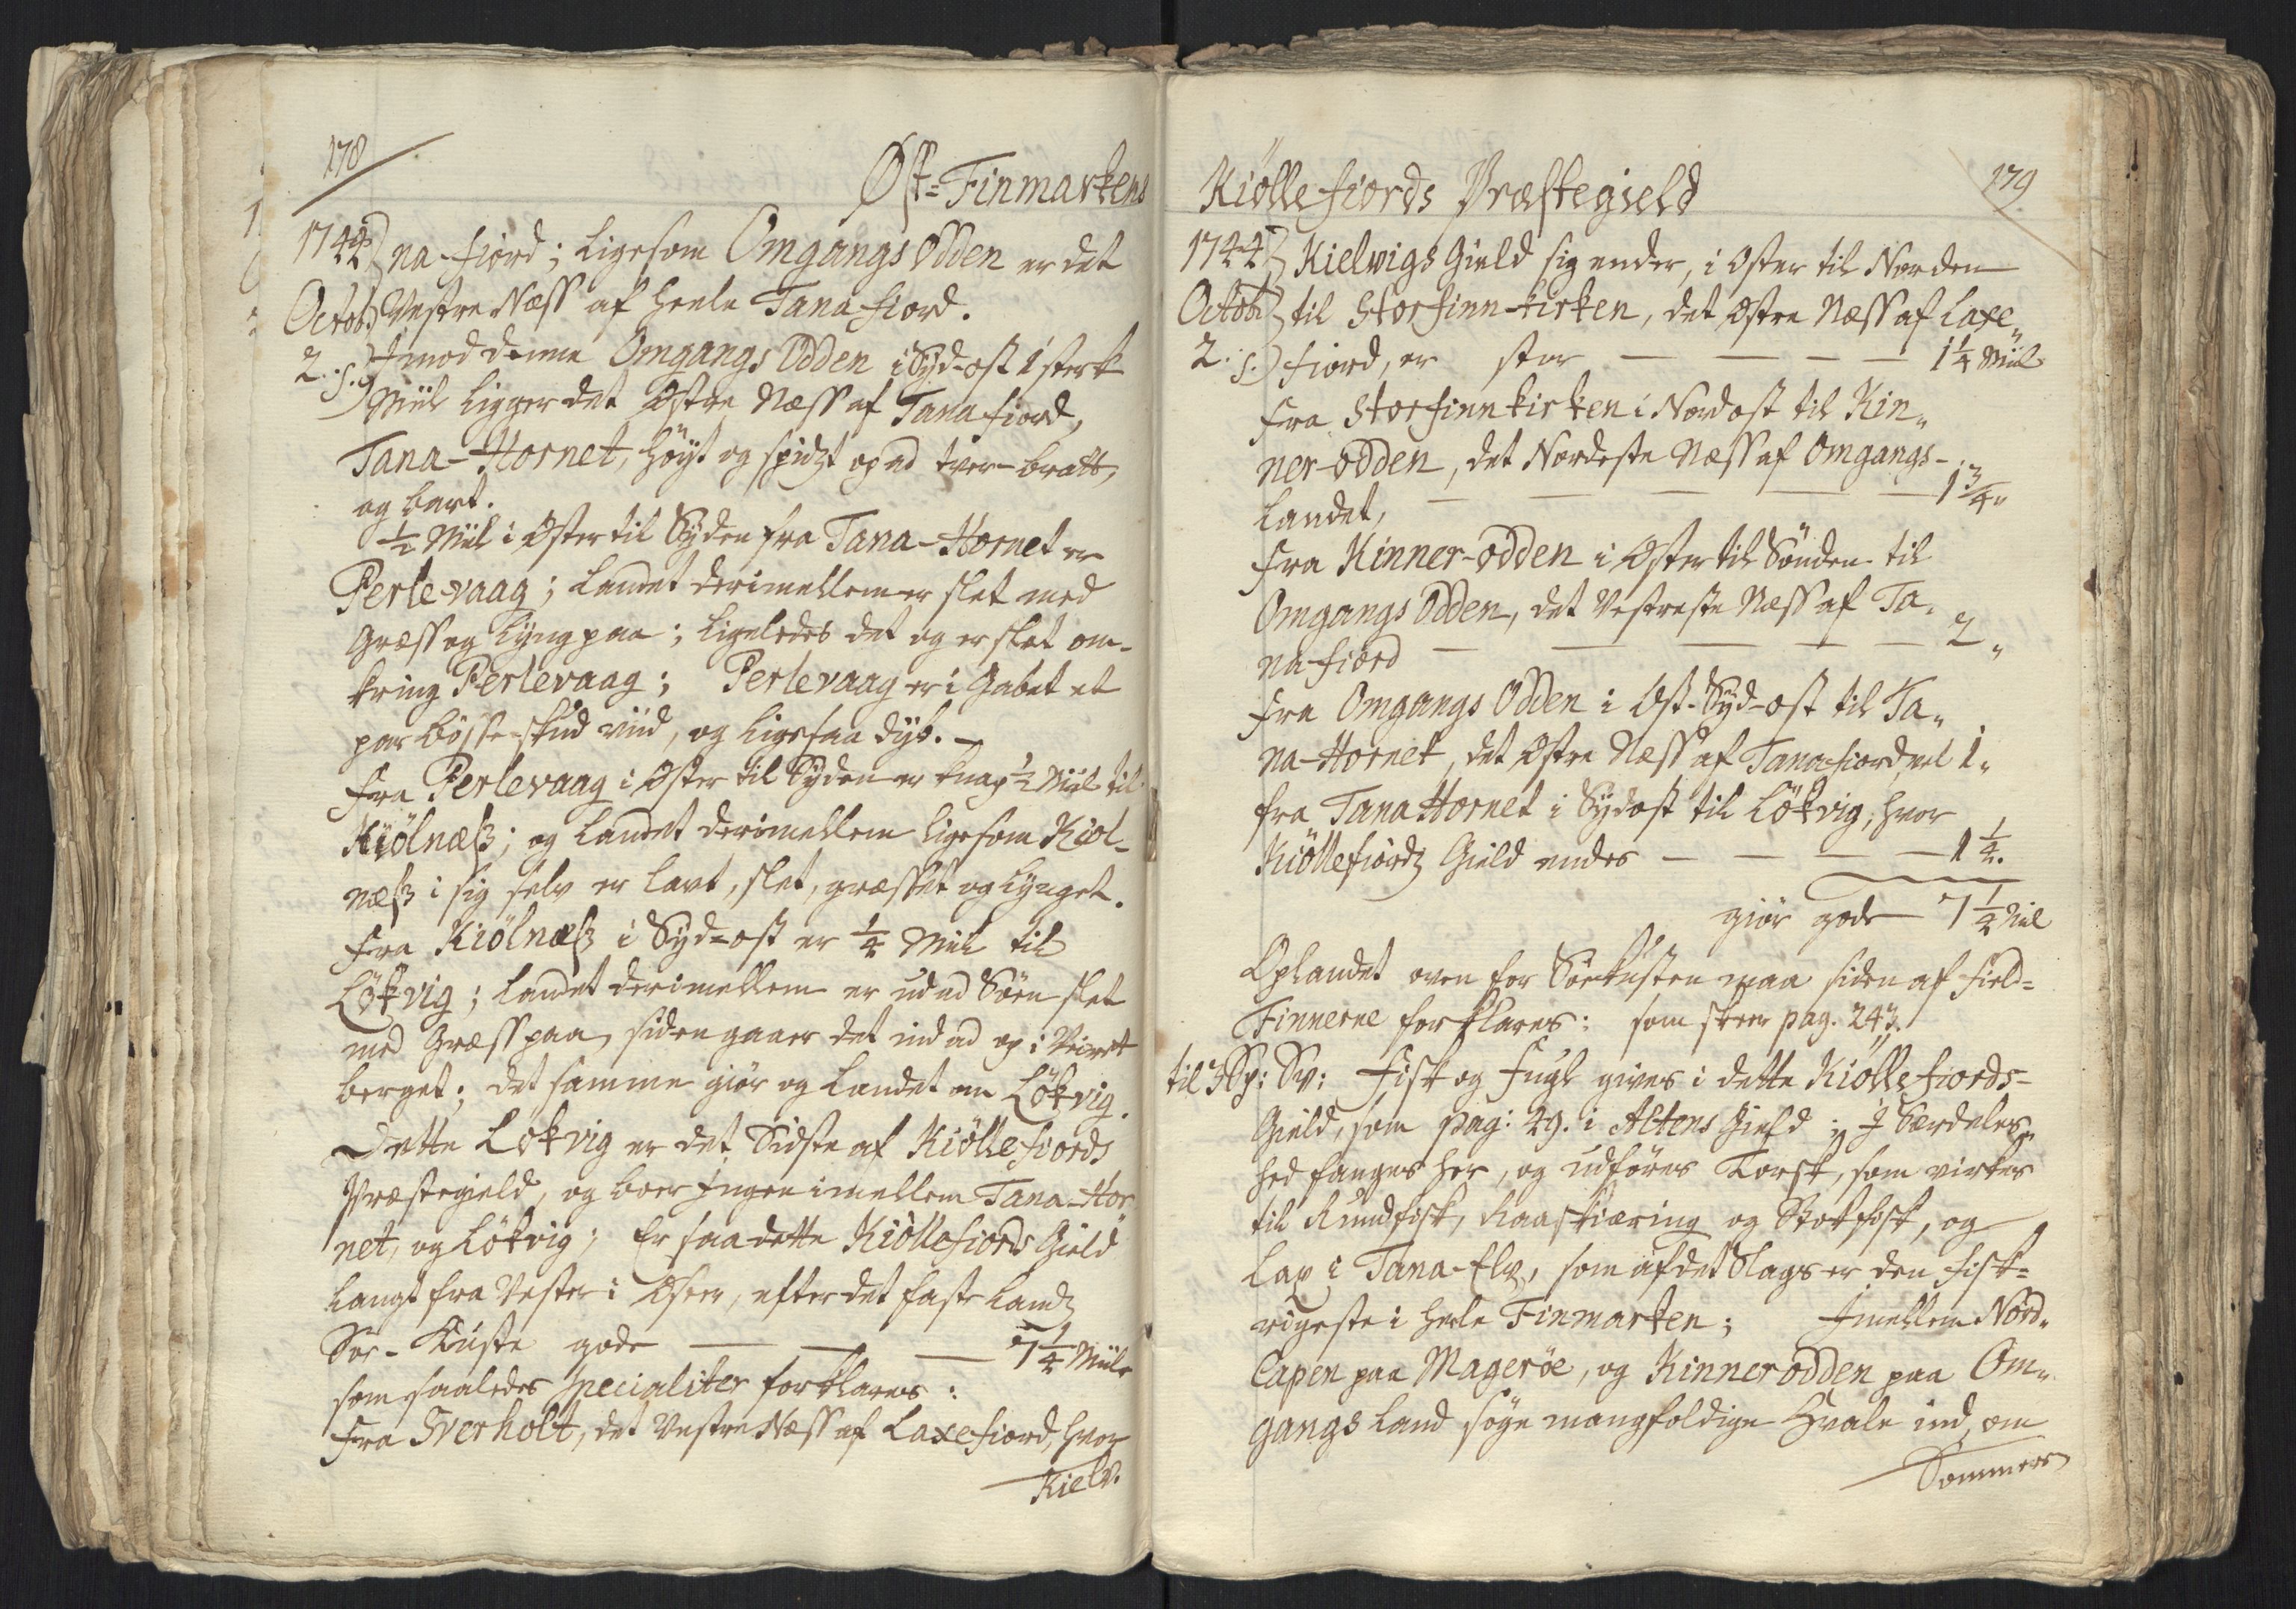 178
Øst=Finmarkens
1744 na-fiord; ligesom Omgangs Odden er det
Octob: Vestre Næss af heele Tanafiord.
2. s. Imod denne Omgangs Odden i Syd-ost 1 sterk
Miil ligger det Østre Næss af Tanafiord,
Tana-Hornet, høyt og spidzt opad tver-bratt,
og bart.
½ Miil i Øster til Syden fra Tana-Hornet er
Perle-vaag; Landet derimellem er slet med
Græss og Lyng paa; ligeledes det og er slet om-
kring Perlevaag; Perlevaag er i Gabet et
par bösse-skud viid, og ligesaa dyb. -
Fra Perlevaag i Øster til Syden er knap ½ Miil til
Kiölnæss; og Landet derimellem ligesom Kiöl-
næss i sig selv er lavt, slet, græsset og lynget.
Fra Kiölnæss i Syd-ost er ¼ Miil til
Lökvig; Landet derimellem er udad Söen slet
med Græss paa, siden gaaer det ind ad op i Veiret
berget; det samme giör og Landet om Lökvig.
Dette Lökvig er det Sidste af Kiöllefiords
Præstegield, og boer Ingen imellem Tana-Hor
net, og Lökvig; Er saa dette Kiöllefiords Gield
langt fra Vester i Øster, efter det faste Landz
Söe-Kuste gode — — — 7¼ Miile
som saaledes specialiter forklares:
Fra Sverholt, det Vestre Næss af Laxefiord, hvor
Kielv.
Kiöllefiords Præstegield
179
1744 Kielwigs Gield sig ender, i Øster til Norden
Octob: til Storfinn-kirken, det Østre Næss af Laxe„
2. s. fiord, er stor — — — — 1¼ Miil
Fra Storfinnkirken i Nordost til Kin„
ner-odden, det Nordeste Næss af Omgangs-
Landet, — — — — 1¾„
Fra Kinner-odden i Øster til Sönden til
Omgangs Odden, det Vestreste Næss af Ta-
na fiord — — — — — 2„
Fra Omgangs Odden i Ost-Syd-ost til Ta„
na-Hornet, det Østre Næss af Tanafiord, vel 1„
Fra Tana Hornet i Sydost til Lökvig, hvor
Kiöllefiordz Gield endes — — — — 1¼.
giör gode 7¼ Miil
Oplandet oven for Söekusten maa siden af Field=
Finnerne forklares: som skeer pag. 243.
til 3 Sp: Sv: Fisk og Fugl gives i dette Kiöllefiords-
Gield, som pag: 49. i Altens Gield; I Særdeles„
hed fanges her, og udföres Torsk, som virkes
til Rundfisk, Raaskiæring og Stokfisk, og
Lax i Tana-Elv, som af det Slags er den fisk=
rigeste i heele Finmarken; Imellem Nord„
Capen paa Mageröe, og Kinnerodden paa Om„
gangs Land söge mangfoldige Hvale ind, om
Sommeren